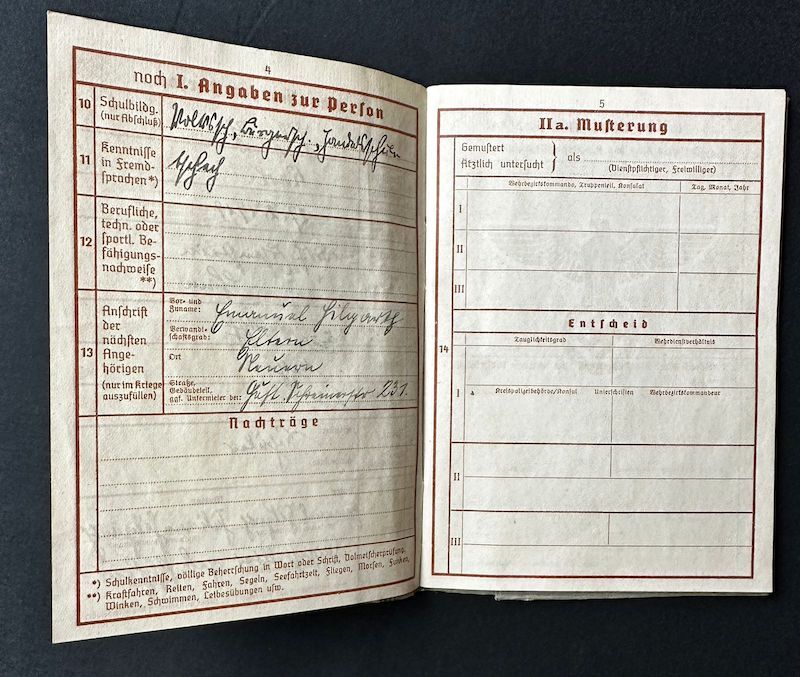 4
noch I. Angaben zur Person
10 Schulbildg. (nur Abschluß) Volkssch., Bürgersch., Handelsschule
11 Kenntnisse in Fremdsprachen*) tschech
12 Berufliche, techn. oder sportl. Befähigungsnachweise **)
13 Anschrift der nächsten Angehörigen (nur im Kriege auszufüllen)
Vor- und Zuname: Emanuel Hilgarth
Verwandtschaftsgrad: Eltern
Ort Neuern
Straße, Gebäudeteil, ggf. Untermieter bei: 231.
Nachträge
*) Schulkenntnisse, völlige Beherrschung in Wort oder Schrift, Dolmetscherprüfung.
**) Kraftfahren, Reiten, Fahren, Segeln, Seefahrtzeit, Fliegen, Morsen, Funken,
Winken, Schwimmen, Leibesübungen usw.
5
IIa. Musterung
Gemustert
Ärztlich untersucht } als
(Dienstpflichtiger, Freiwilliger)
Wehrbezirkskommando, Truppenteil, Konsulat Tag, Monat, Jahr
I
II
III
Entscheid
14 Tauglichkeitsgrad Wehrdienstverhältnis
I Kreispolizeibehörde/Konsul Unterschriften Wehrbezirkskommandeur
II
III